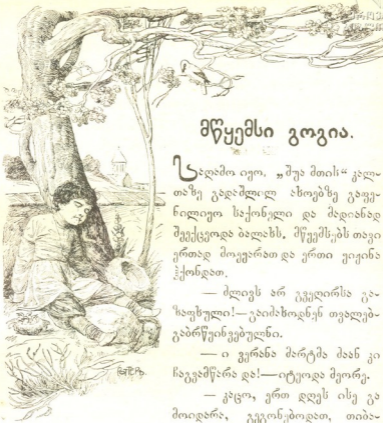 მწყემსი გოგია.
საღამო იყო, „შუა მთის“ კალ-
თაზე გადაშლილ ახოებზე გაფე-
ნილიყო საქონელი და მადიანად
შეექცეოდა ბალახს. მწყემსებს თავი
ერთად მოეყარათ და ერთი ჟივილი
ჰქონდათ.
— ძლივს არ გვეღირსა გა-
ზაფხული!—გაიძახოდნენ თვალებ-
გაბრწყინვებულნი.
— ი ვერანა მარტმა მაინ კი
ჩაგვამწარა და!—იტყოდა მეორე.
— კაცო, ერთ დღეს ისე გა
მოიდარა, გეგონებოდათ, თიბა-